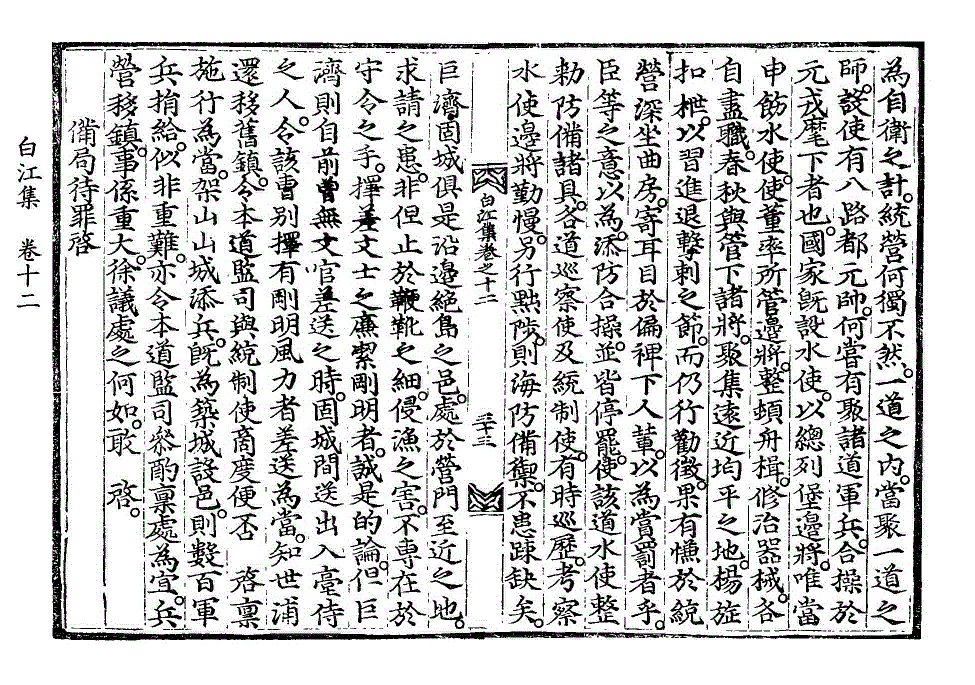 為自衛之計。統營何獨不然。一道之內。當聚一道之
師。設使有八路都元帥。何嘗有聚諸道軍兵。合操於
元戎麾下者也。國家旣設水使。以總列堡邊將。唯當
申飭水使。使董率所管邊將。整頓舟楫。修治器械。各
自盡職。春秋與管下諸將。聚集遠近均平之地。揚旌
扣枻。以習進退擊刺之節。而仍行勸徵。果有慊於統
營深坐曲房。寄耳目於偏裨下人輩。以爲賞罰者乎。
臣等之意。以為。添防合操。並皆停罷。使該道水使整
勑防備諸具。各道巡察使及統制使。有時巡歷。考察
水使邊將勤慢。另行黜陟。則海防備禦。不患踈缺矣。
白江集卷之十二
三十三
巨濟固城俱是沿邊絕島之邑。處於營門至近之地。
求請之患。非但止於鞭靴之細。侵漁之害。不專在於
守令之手。擇差文士之廉潔剛明者。誠是的論。但巨
濟則自前曾無文官差送之時。固城間送出入臺侍
之人。令該曹別擇有剛明風力者差送為當。知世浦
還移舊鎮。令本道監司與統制使商度便否 啓稟
施行為當。架山山城添兵。旣為築城設邑。則數百軍
兵捐給。似非重難。亦令本道監司叅酌稟處為宜。兵
營移鎮。事係重大。徐議處之何如。敢 啓。
備局待罪啓
白江集 卷十二